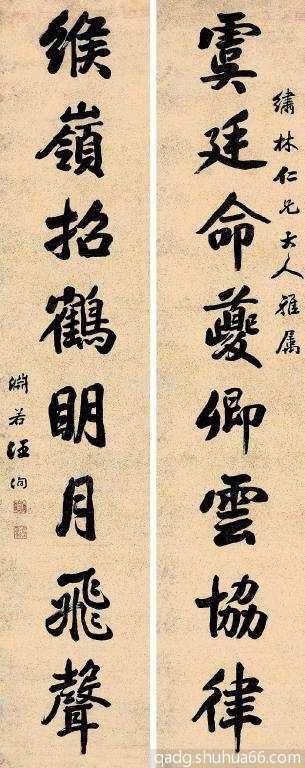 繡林仁兄大人雅屬
虞廷命夔卿雲協律
緱嶺招鶴明月飛聲
淵若汪洵
qadg.shuhua66.com